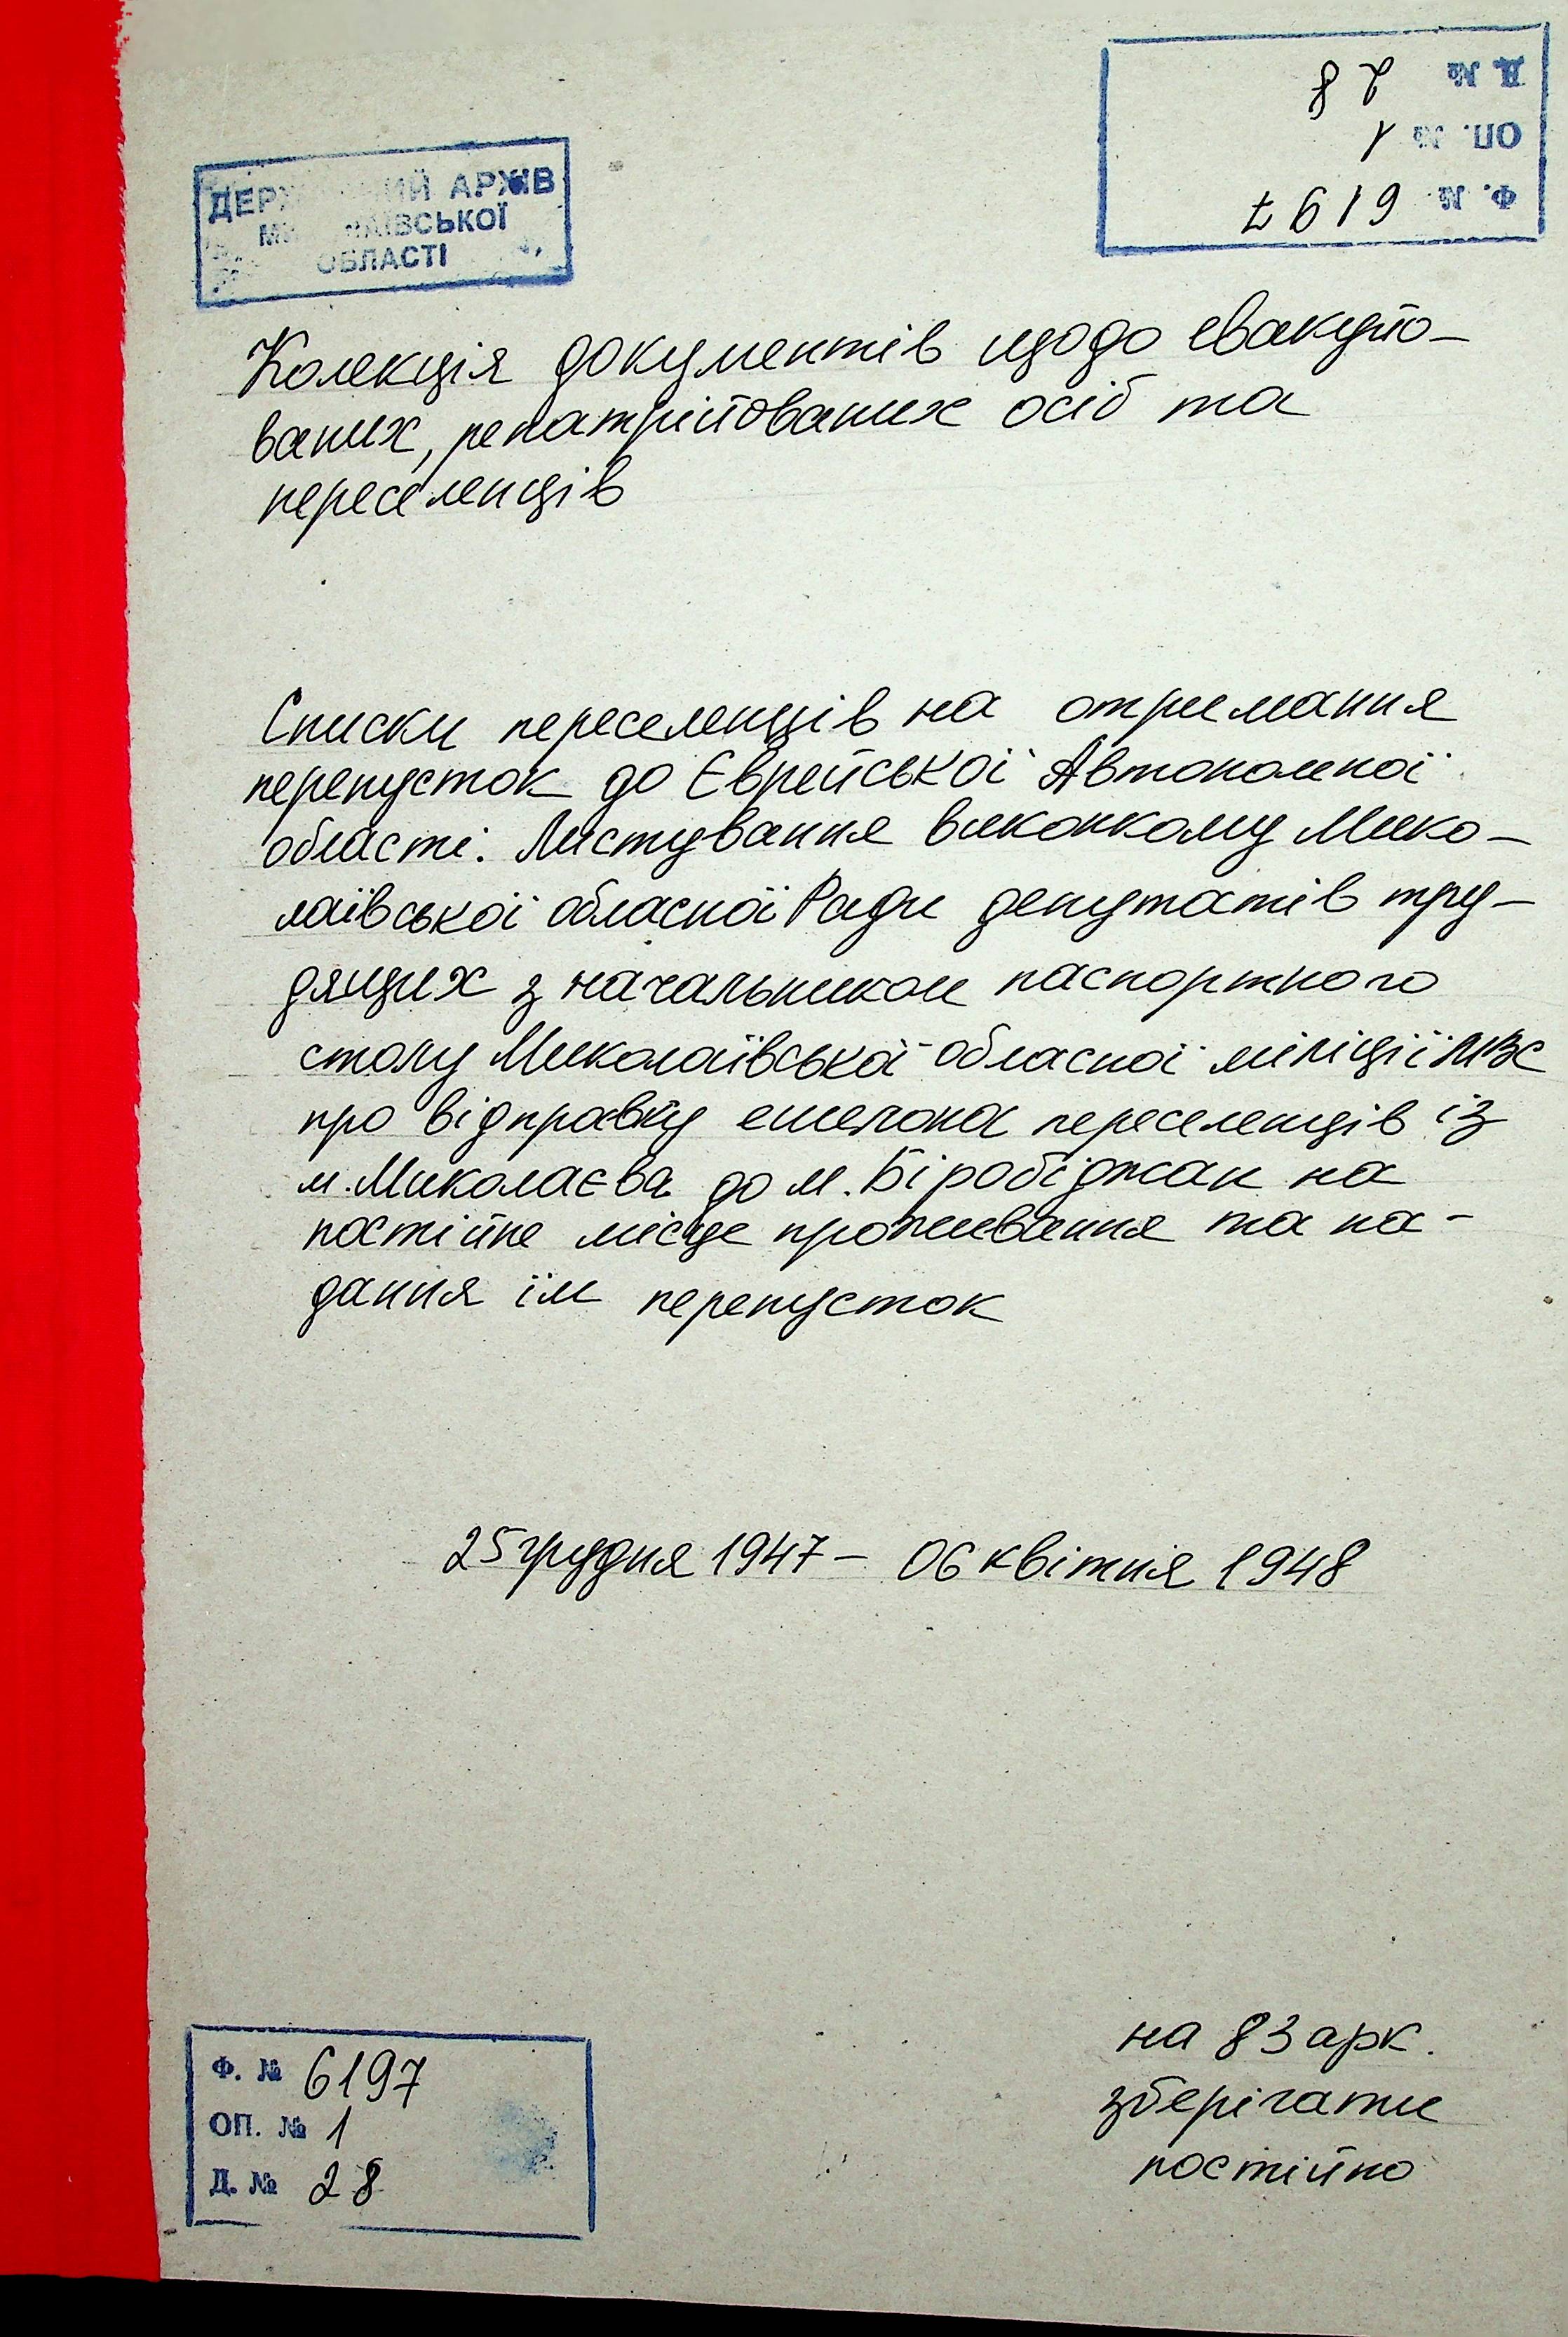 Д. № 28
ОП. № 1
Ф. № 6197
ДЕРЖАВНИЙ АРХІВ
МИКОЛАЇВСЬКОЇ
ОБЛАСТІ
Колекція документів щодо евакуйо-
ваних, репатрійованих осіб та
переселенців
Списки переселенців на отримання
перепусток до Єврейської Автономної
області. Листування виконкому Мико-
лаївської обласної Ради депутатів тру-
дящих з начальником паспортного
столу Миколаївської обласної міліції МВС
про відправку ешелона переселенців із
м. Миколаєва до м. Біробіджан на
постійне місце проживання та на-
дання їм перепусток
25 грудня 1947 – 06 квітня 1948
на 83 арк.
зберігати
постійно
Ф. № 6197
ОП. № 1
Д. № 28